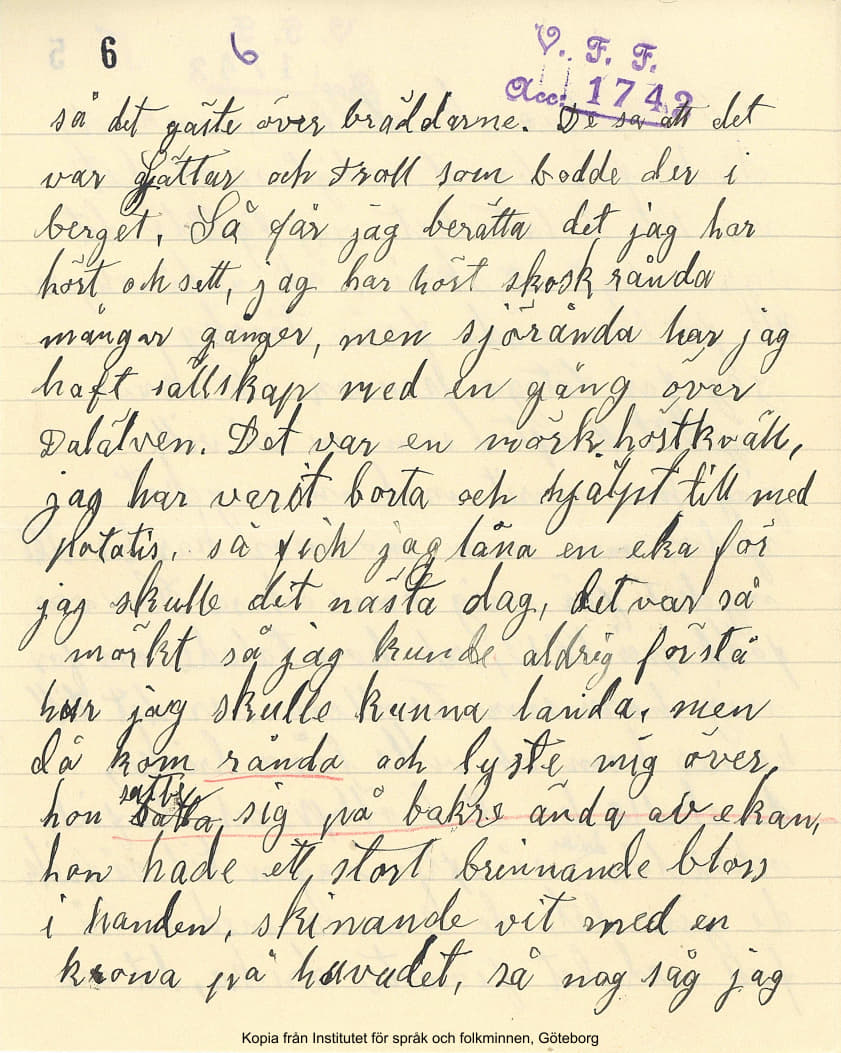 6 6
V. F. F.
Acc. 1742
så det gäste över bräddarne. De sa att det
var Jättar och troll som bodde der i
berget. Så får jag berätta det jag har
hört och sett, jag har hört skoskrånda
mångar ganger, men sjörånda har jag
haft sällskap med en gång över
Dalälven. Det var en mörk höstkväll,
jag har varit borta och hjälpt till med
potatis, så fick jag låna en eka för
jag skulle det nästa dag, det var så
mörkt så jag kunde aldrig förstå
hur jag skulle kunna landa, men
då kom rånda och lyste mig över,
hon satte sig på bakre ända av ekan,
hon hade ett stort brinnande bloss
i handen, skinande vit med en
krona på huvudet, så nog såg jag
Kopia från Institutet för språk och folkminnen, Göteborg